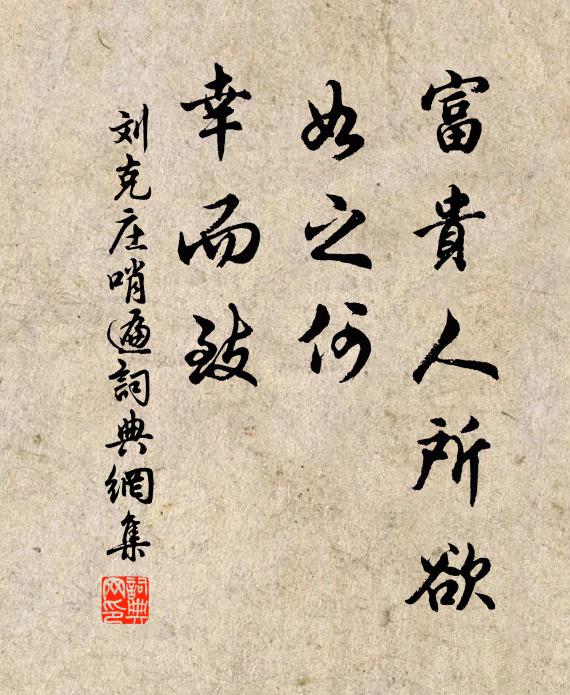 富貴人所欲
如之何
幸而致
刘克庄哨遍詞典網集
詞典
网印